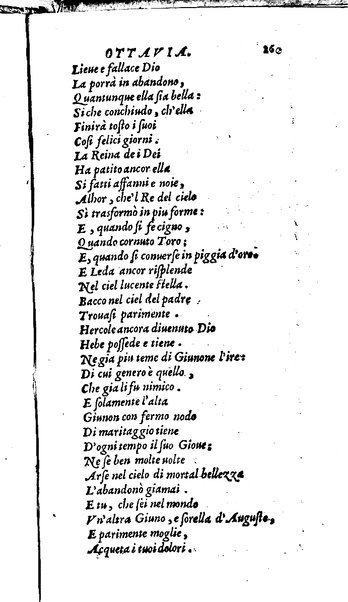 OTTAVIA. 260
Lieue e fallace Dio
La porrà in abandono,
Quantunque ella sia bella:
Si che conchiudo, ch'ella
Finirà tosto i suoi
Cosi felici giorni.
La Reina de i Dei
Ha patito ancor ella
Si fatti affanni e noie,
Alhor, che'l Re del cielo
Si trasformò in piu forme:
E, quando si fe cigno,
Quando cornuto Toro;
E, quando si conuerse in piggia d'oro.
E Leda ancor risplende
Nel ciel lucente stella.
Bacco nel ciel del padre
Trouasi parimente.
Hercole ancora diuenuto Dio
Hebe possede e tiene.
Ne gia piu teme di Giunone l'ire:
Di cui genero è quello,
Che gia li fu nimico.
E solamente l'alta
Giunon con fermo nodo
Di maritaggio tiene
D'ogni tempo il suo Gioue;
Ne se ben molte uolte
Arse nel cielo di mortal bellezza
L'abandonò giamai.
E tu, che sei nel mondo
Vn'altra Giuno, e sorella d'Augusto,
E parimente moglie,
Acqueta i tuoi dolori.